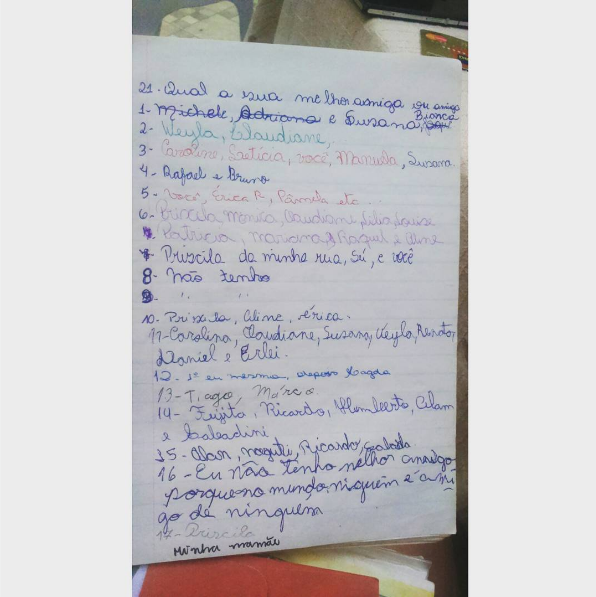 21. Qual a sua melhor amiga ou amigo
1- Michele, Adriana e Susana, Bianca
2- Weyla, Claudiane,
3- Caroline, Laetícia, você, Manuela, Susana
4- Rafael e Bruno
5- Você, Érica P, Pâmela etc...
6- Priscila Mônica, Claudiane, Lilia, Louise
Patricia, Mariana, Raquel e Aline
7- Priscila da minha rua, Sú, e você
8- não tenho
9- " "
10. Priscila, Aline, érica.
11- Carolina, Claudiane, Susana, Weyla, Renata,
Daniel e Erlei.
12- 1º eu mesma, depois Magda
13- Tiago, Márco
14- Fujita, Ricardo, Humberto,
e
15- Alan, Ricardo,
16- Eu não tenho melhor amigo
porque no mundo niguém é ami
go de ninguém
17- Priscila
Minha mamãe